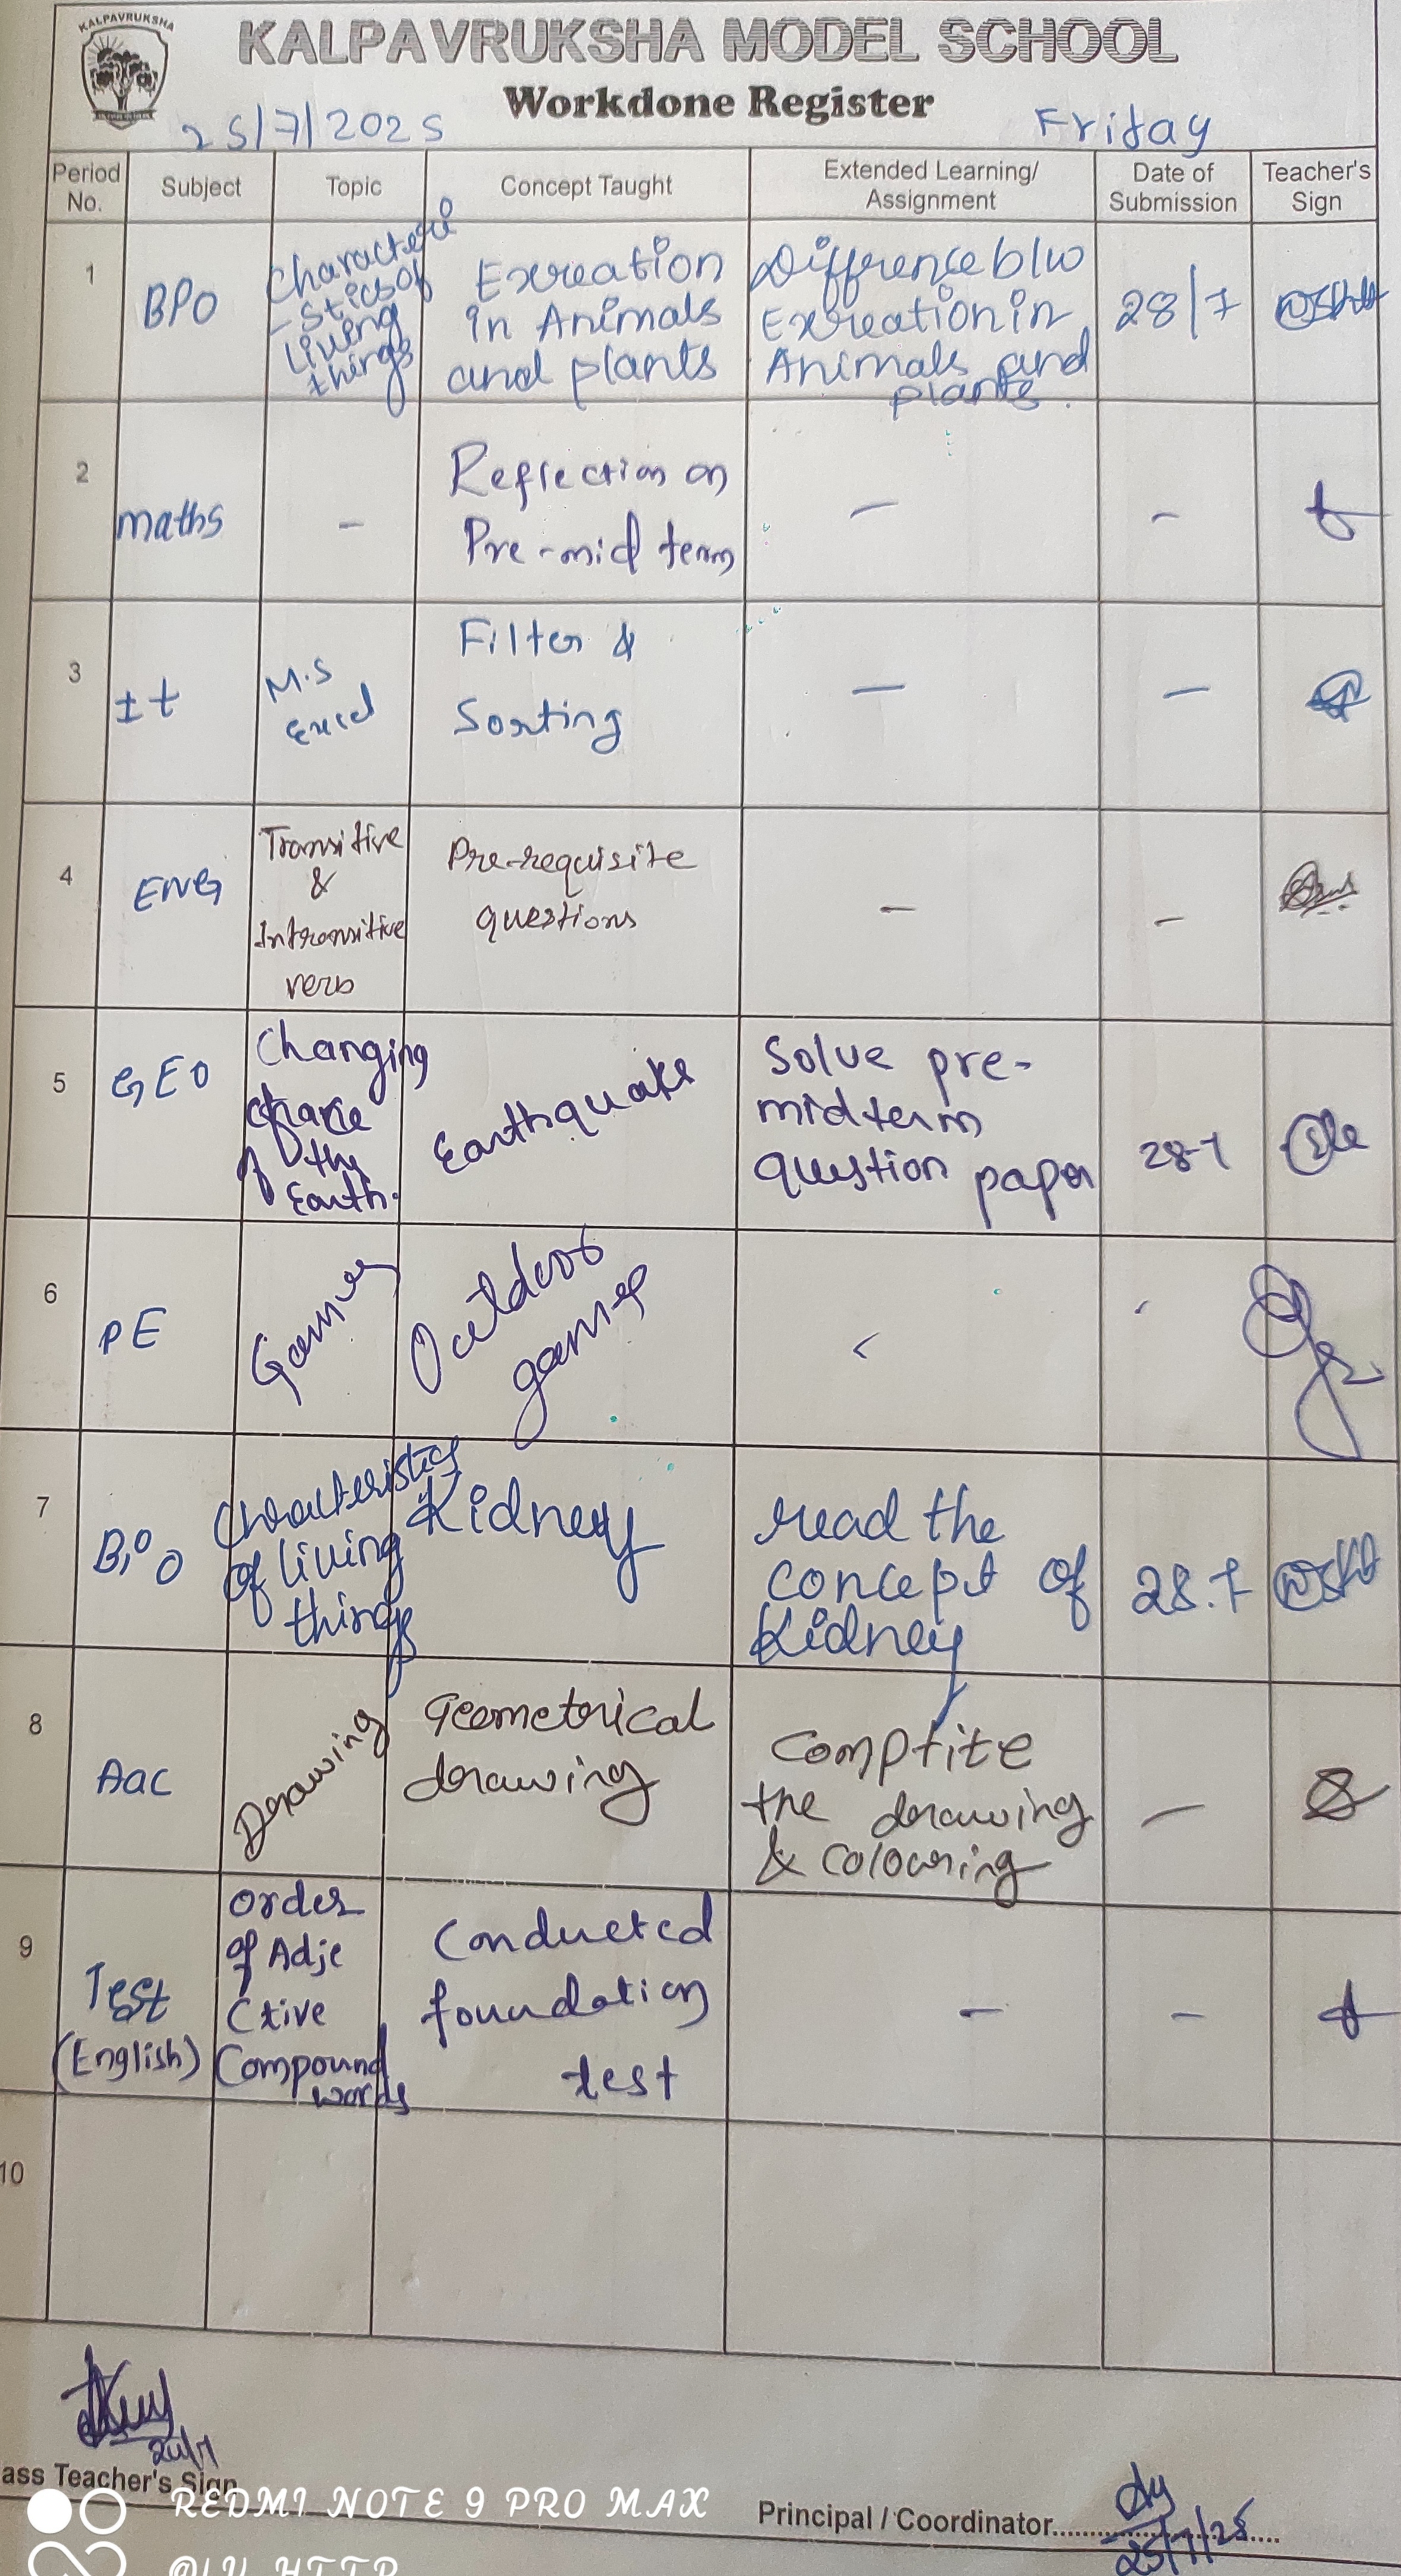 KALPAVRUKSHA
KALPAVRUKSHA MODEL SCHOOL
Workdone Register
25/7/2025
Friday
Period No.
Subject
Topic
Concept Taught
Extended Learning/ Assignment
Date of Submission
Teacher's Sign
1
BIO
Characteri
-stics of
living
things
Excreation
in Animals
and plants
Difference b/w
Excreation in
Animals and
plants.
28/7
2
maths
-
Reflection on
Pre-mid term
-
-
3
It
M.S
Excel
Filter &
Sorting
-
-
4
ENG
Transitive
&
Intransitive
verb
Pre-requisite
questions
-
-
5
GEO
Changing
face
of the
Earth.
Earthquake
Solve pre-
midterm
question paper
28-7
6
PE
Games
Outdoor
games
7
Bio
Characteristics
of living
things
Kidney
read the
concept of
Kidney
28.7
8
Aac
Drawing
Geometrical
drawing
Comptite
the drawing
& colouring
-
9
Test
(English)
Order
of Adje
ctive
Compound
words
Conducted
foundation
test
-
-
10
ass Teacher's Sign
Principal / Coordinator
25/7/25
REDMI NOTE 9 PRO MAX